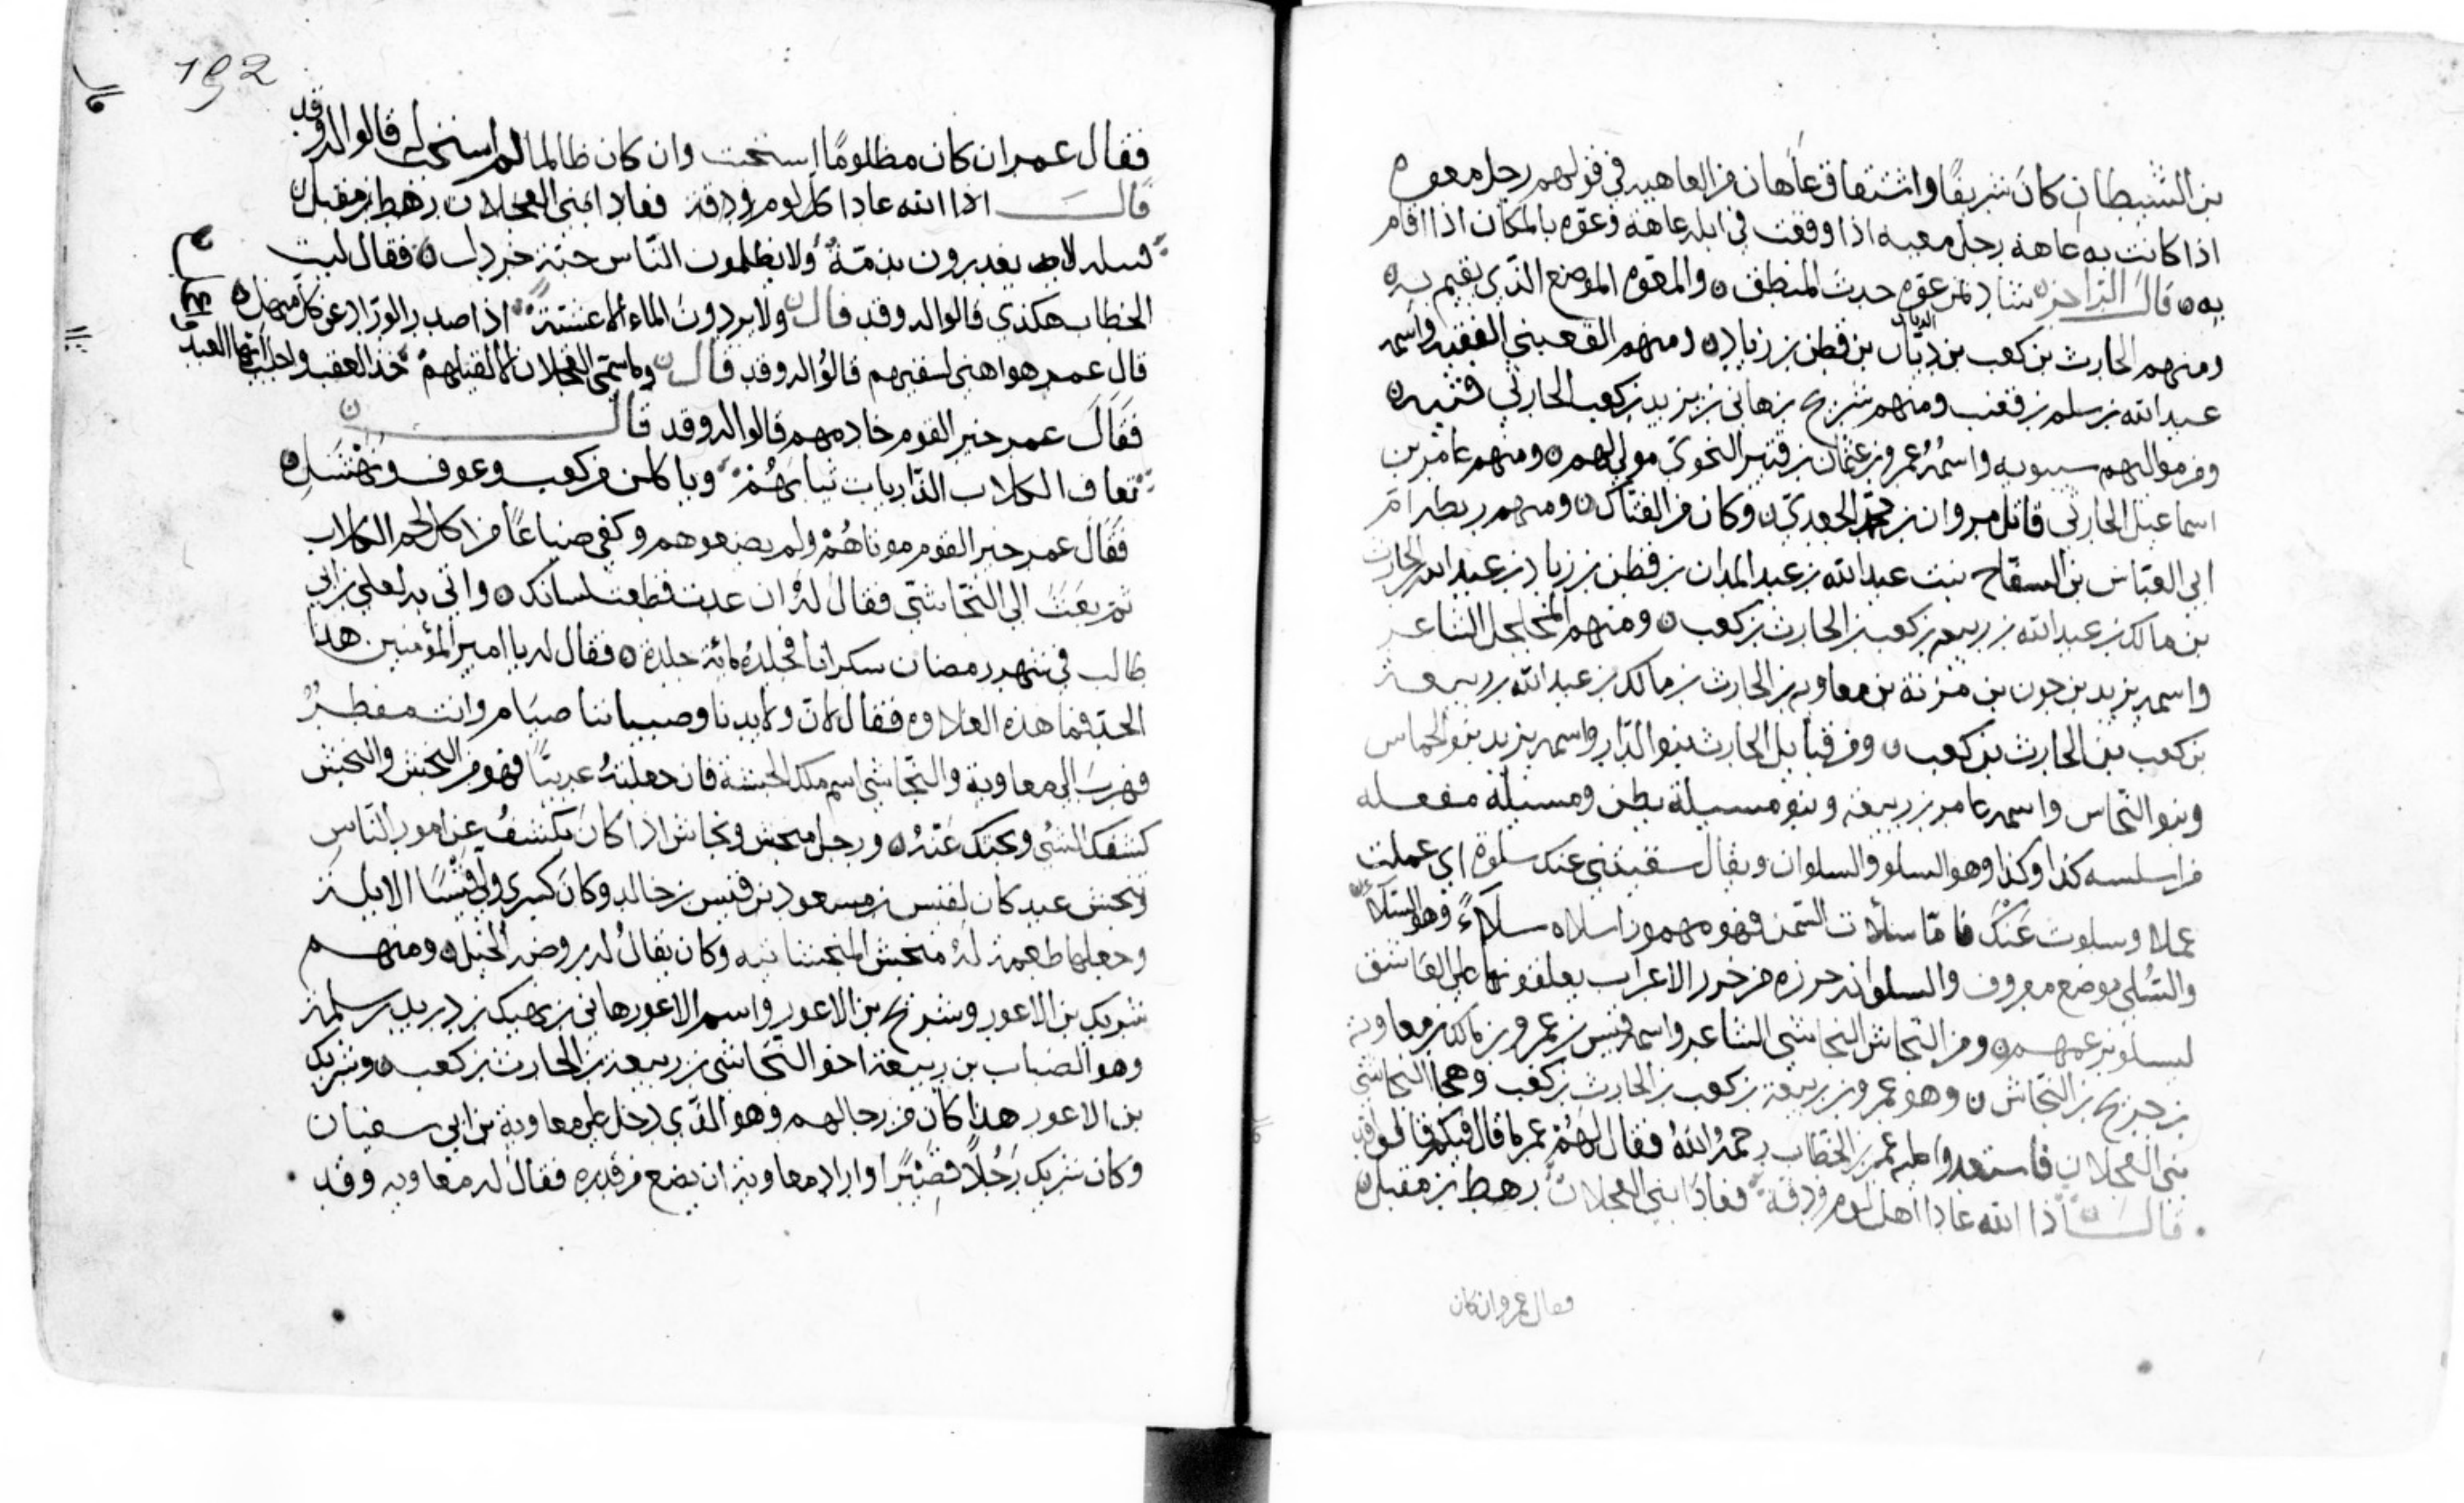 بن الشيطان كان شريفًا واشتقاق عاهان من العاهه في قولهم رجل معوه
اذا كانت به عاهة رجل معيه اذا وقعت في ابله عاهة وعوّه بالمكان اذا اقام
به ن قال الراجز ن شاز بمن عوّه جدب المنطلق ن والمعوّه الموضع الذي يقيم به ن
ومنهم الحارث بن كعب بن ديّان الديان بن قطن بن زياد ن ومنهم القعنبي الفقيه واسمه
عبد الله بن سلم بن قعنب ومنهم شريح بن هاني بن يزيد بن كعب الحارثي
ومن مواليهم سيبويه واسمه عمرو بن عثمان بن قنبر النحوي مولى لهم ن ومنهم عامر بن
اسماعيل الحارثي قاتل مروان بن محمد الجعدي ن وكان من الفتاك ن ومنهم ريطه ام
ابي العباس بن السفاح بنت عبد الله بن عبد المدان بن قطن بن زياد بن عبد الله بن الحارث
بن مالك بن عبد الله بن ربيعه بن كعب بن الحارث بن كعب ن ومنهم المحجل الشاعر
واسمه يزيد بن جون بن مزنة بن معاويه بن الحارث بن مالك بن عبد الله بن ربيعة
بن كعب بن الحارث بن كعب ن ومن قبايل الحارث بنو الديّار واسمه يزيد بنو الحماس
وبنو النّحاس واسمه عامر بن ربيعه وبنو مسيلة بطن ومسيله مفعله
من اسلسه كذا وكذا وهو السلو والسلوان ويقال سقيتني عنك سلوة اي عملت
عملا وسلوت عنك فامّا سلأت السّمن فهو مهموز اسلاه سلاءً وهو السلاء
والسُّلي موضع معروف والسلوانه خرزه من خرز الاعراب يعلقونها على العاشق
ليسلو بزعمهم ن ومن النجاش النجاشي الشاعر واسمه قيس بن عمرو بن مالك بن معاوية
بن خديج بن النجاش ن وهو عمرو بن ربيعة بن كعب بن الحارث بن كعب وهجا النجاشي
بني العجلان فاستعدوا عليه عمر بن الخطاب رحمه الله فقال لهم عمر ما قال فيكم قالوا قد
قال اذا الله عادا اهل لوم ودقة فعادا بني العجلان رهط بن مقبل ن
فقال عمر وان كان
192
فقال عمر ان كان مظلومًا استجيب وان كان ظالما لم يستجب له قالوا له وقد
قال اذا الله عادا كل لوم ودقة فعادا بني العجلان رهط بن مقبل ن
قبيله لا يغدرون بذمّةٍ ولا يظلمون الناس حبّة خردل ن فقال ليت
الخطاب هكذي قالوا له وقد قال ن ولا يردون الماء الا عشيّة اذا صدر الورّاد عن كل منهل ن
قال عمر هو اهنى لسقيهم قالوا له وقد قال ن وما سمّي العجلان الا لقيلهم خذ القعب واحلب ايها العبد
فقال عمر خير القوم خادمهم قالوا له وقد قال ن
تعاف الكلاب الضّاريات ويا كلن من كعب وعوف ونهشل ن
فقال عمر خير القوم موتاهم ولم يضيعوهم وكفى ضياعًا من اكل لحم الكلاب
ثم بعث الى النجاشي فقال له ان عدت قطعت لسانك ن واتى به لعلي بن ابي
طالب في شهر رمضان سكرانا فجلده مائة جلدة ن فقال له يا امير المؤمنين هذا
الحد فما هذه العلاوه فقال لانّ ولايدنا وصبياننا صيام وانت مفطر
فهرب الى معاوية والنجاشي اسم ملك الحبشة فان جعلته عربيًّا فهو من النجش والنجش
كشفك الشيء وبحثك عنه ن ورجل منجش ونجاش اذا كان يكشف عن امور الناس
ونجش عبد كان لقيس بن مسعود بن قيس بن خالد وكان كسرى ولّى قيسًا الابلة
وجعلها طعمة له منجش المنجشانيه وكان يقال له روض الخيل ن ومنهم
شريك بن الاعور وشريح بن الاعور واسم الاعور هاني بن نهيك بن دريد بن سلمة
وهو الضباب بن ربيعة اخو النجاشي بن ربيعة بن الحارث بن كعب ن وشريك
بن الاعور هذا كان من رجالهم وهو الذي دخل على معاوية بن ابي سفيان
وكان شريك رجلًا قصيرًا واراد معاوية ان يضع من قدره فقال له معاويه وقد